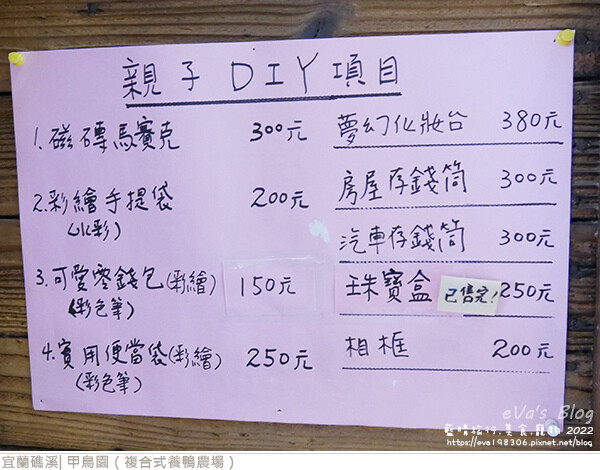 親子DIY項目
1. 磁磚馬賽克 300元
2. 彩繪手提袋 200元
(水彩)
3. 可愛零錢包(彩繪) 150元
(彩色筆)
4. 實用便當袋(彩繪) 250元
(彩色筆)
夢幻化妝台 380元
房屋存錢筒 300元
汽車存錢筒 300元
珠寶盒 已售完! 250元
相框 200元
eVa's Blog
藍晴旅行.美食.寵物 2022
https://eva198306.pixnet.net/blog
宜蘭礁溪| 甲鳥園 ( 複合式養鴨農場 )